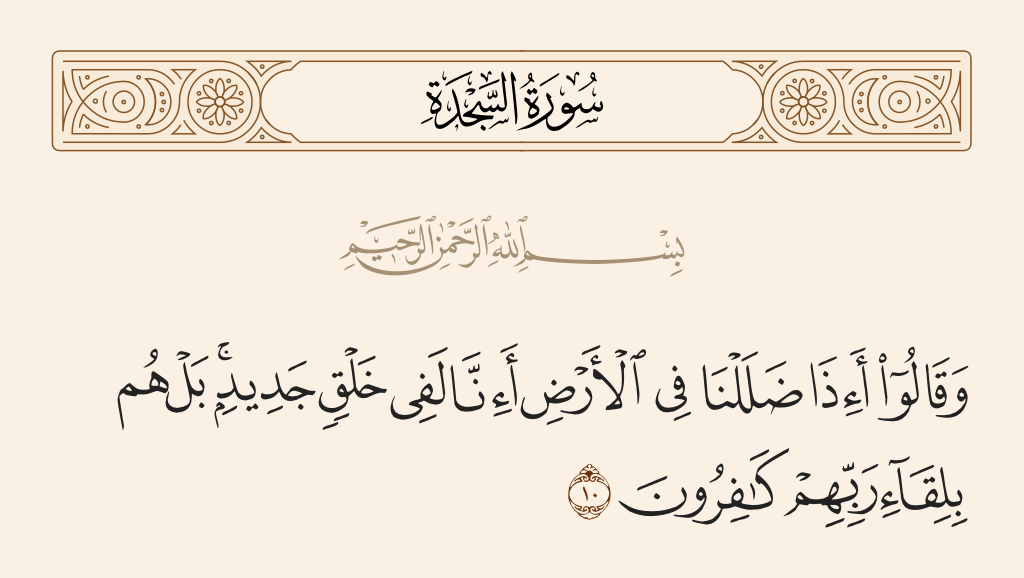 سُورَةُ السَّجْدَةِ
بِسْمِ ٱللَّهِ ٱلرَّحْمَٰنِ ٱلرَّحِيمِ
وَقَالُوٓا۟ أَءِذَا ضَلَلْنَا فِى ٱلْأَرْضِ أَءِنَّا لَفِى خَلْقٍ جَدِيدٍۭ ۚ بَلْ هُم
بِلِقَآءِ رَبِّهِمْ كَـٰفِرُونَ ١٠